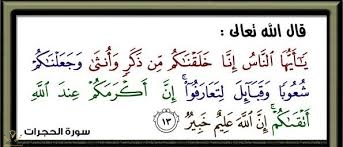 قال الله تعالى :
يَٰٓأَيُّهَا ٱلنَّاسُ إِنَّا خَلَقۡنَٰكُم مِّن ذَكَرٖ وَأُنثَىٰ وَجَعَلۡنَٰكُمۡ
شُعُوبٗا وَقَبَآئِلَ لِتَعَارَفُوٓاْۚ إِنَّ أَكۡرَمَكُمۡ عِندَ ٱللَّهِ
أَتۡقَىٰكُمۡۚ إِنَّ ٱللَّهَ عَلِيمٌ خَبِيرٞ ١٣
سورة الحجرات